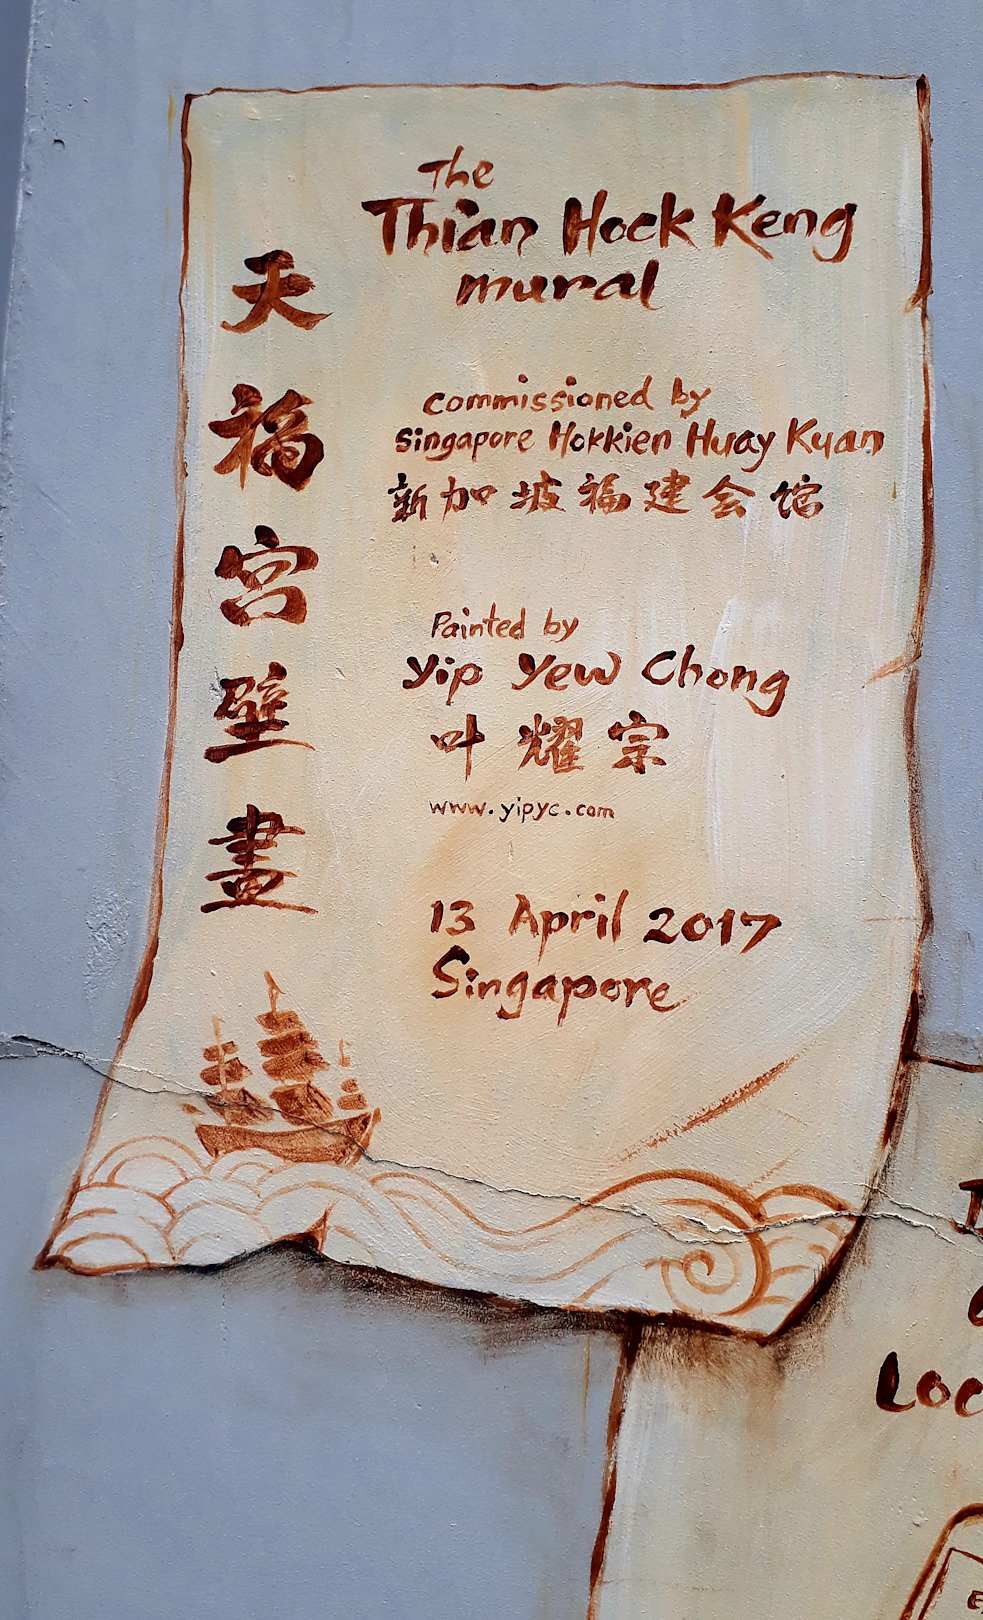 天福宫壁畫
The
Thian Hock Keng
mural
commissioned by
Singapore Hokkien Huay Kuan
新加坡福建会馆
Painted by
Yip Yew Chong
叶耀宗
www.yipyc.com
13 April 2017
Singapore